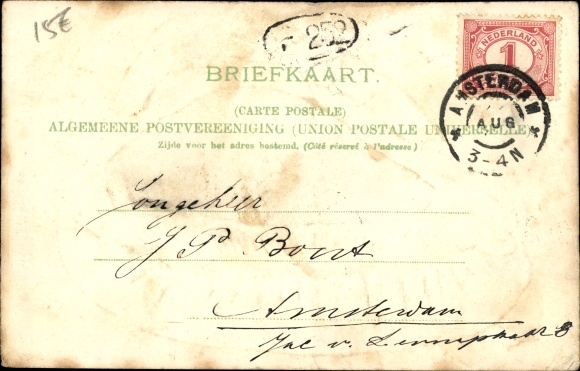 15€
252
NEDERLAND
1
BRIEFKAART.
(CARTE POSTALE)
ALGEMEENE POSTVEREENIGING (UNION POSTALE UNIVERSELLE)
Zijde voor het adres bestemd. (Côté réservé à l'adresse)
AMSTERDAM
AUG
3-4N
Jongeheer
J P. Bout
Amsterdam
Jac v. Lennepkade 8